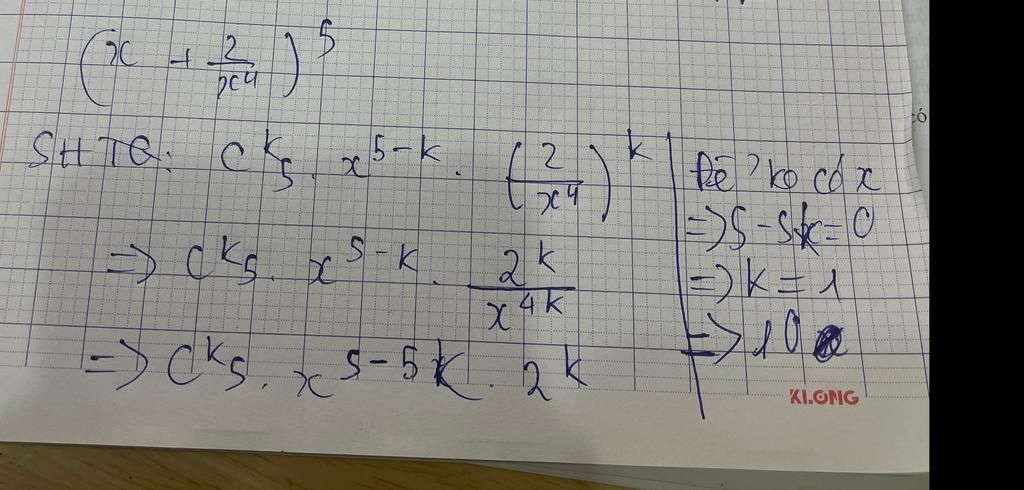 (x + 2/x⁴)⁵
SHTQ: Cᵏ₅ . x⁵⁻ᵏ . (2/x⁴)ᵏ
=> Cᵏ₅ . x⁵⁻ᵏ . 2ᵏ/x⁴ᵏ
=> Cᵏ₅ . x⁵⁻⁵ᵏ . 2ᵏ
Để ko có x
=> 5 - 5k = 0
=> k = 1
=> 10
KLONG
có